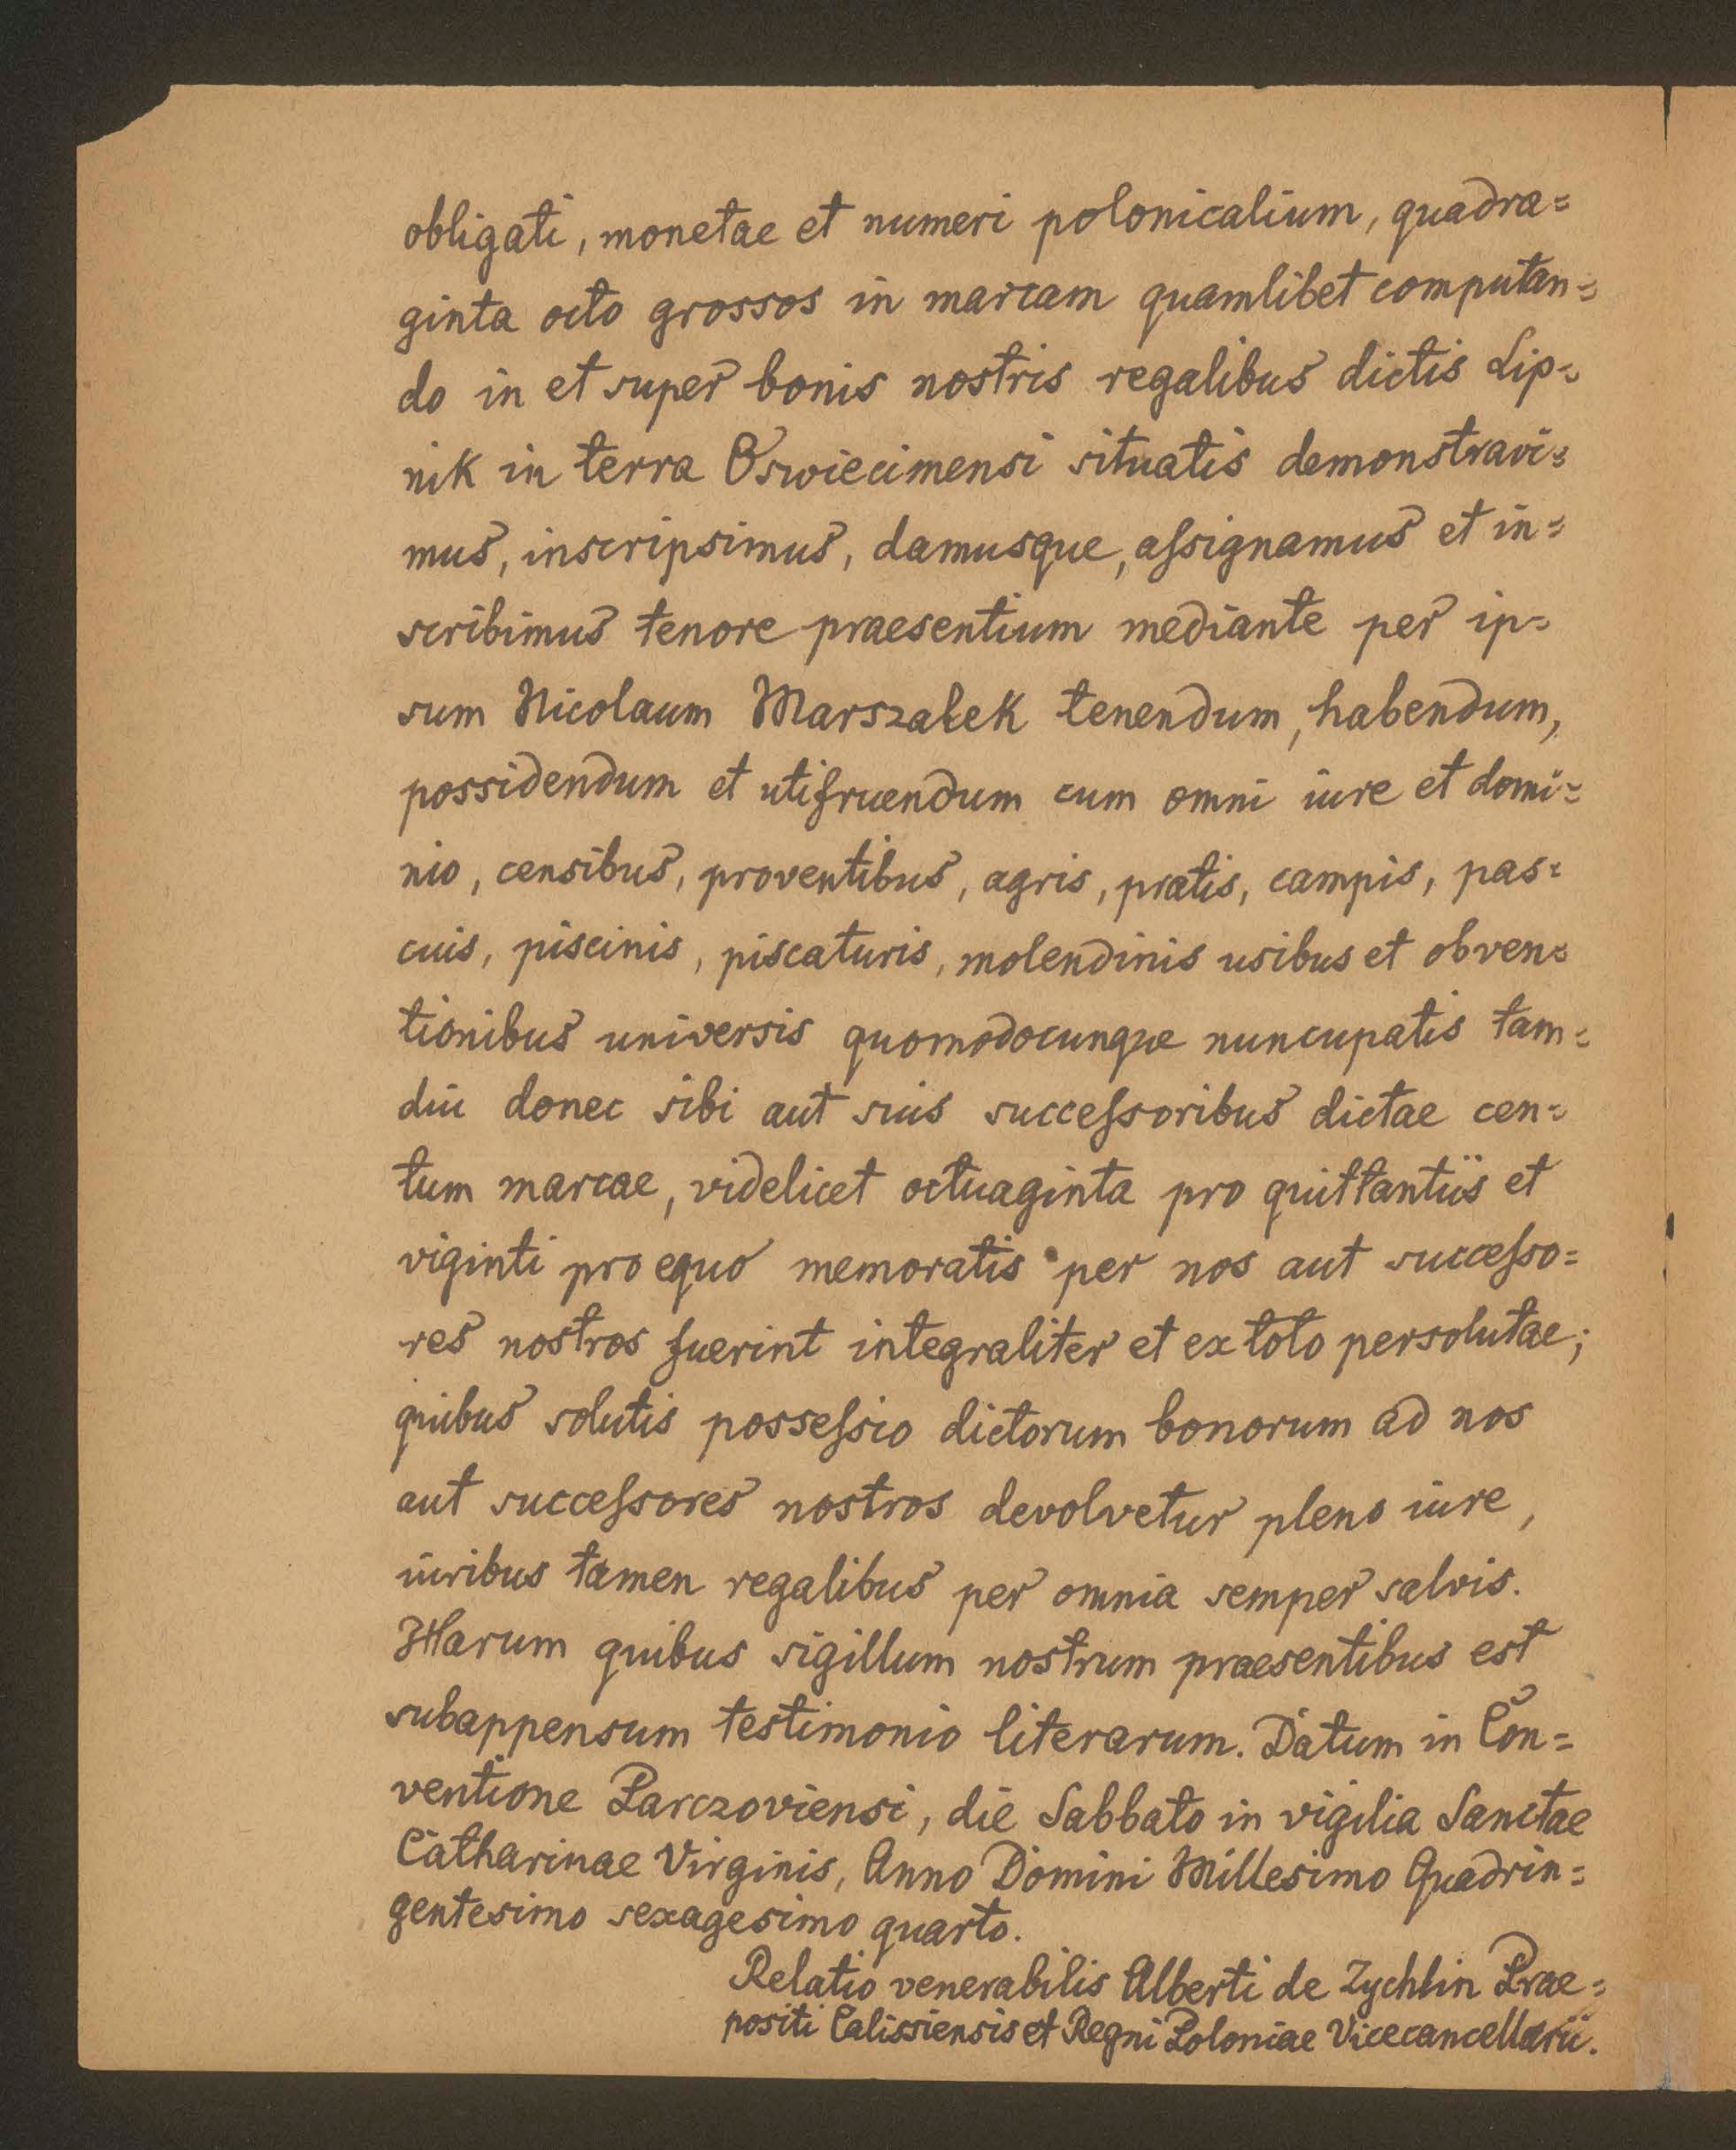 obligati, monetae et numeri polonicalium, quadra=
ginta octo grossos in marcam quamlibet computan=
do in et super bonis nostris regalibus dictis Lip=
nik in terra Oswiecimensi situatis demonstravi=
mus, inscripsimus, damusque, aſsignamus et in=
scribimus tenore praesentium mediante per ip=
sum Nicolaum Marszałek tenendum, habendum,
possidendum et utifruendum cum omni iure et domi=
nio, censibus, proventibus, agris, pratis, campis, pas=
cuis, piscinis, piscaturis, molendinis usibus et obven=
tionibus universis quomodocunque nuncupatis tam=
diu donec sibi aut suis succeſsoribus dictae cen=
tum marcae, videlicet octuaginta pro quittantiis et
viginti pro equo memoratis per nos aut succeſso=
res nostros fuerint integraliter et ex toto persolutae;
quibus solutis posseſsio dictorum bonorum ad nos
aut succeſsores nostros devolvetur pleno iure,
iuribus tamen regalibus per omnia semper salvis.
Harum quibus sigillum nostrum praesentibus est
subappensum testimonio literarum. Datum in Con=
ventione Parczoviensi, die Sabbato in vigilia Sanctae
Catharinae Virginis, Anno Domini Millesimo Quadrin=
gentesimo sexagesimo quarto.
Relatio venerabilis Alberti de Zychlin Prae=
positi Calissiensis et Regni Poloniae Vicecancellarii.